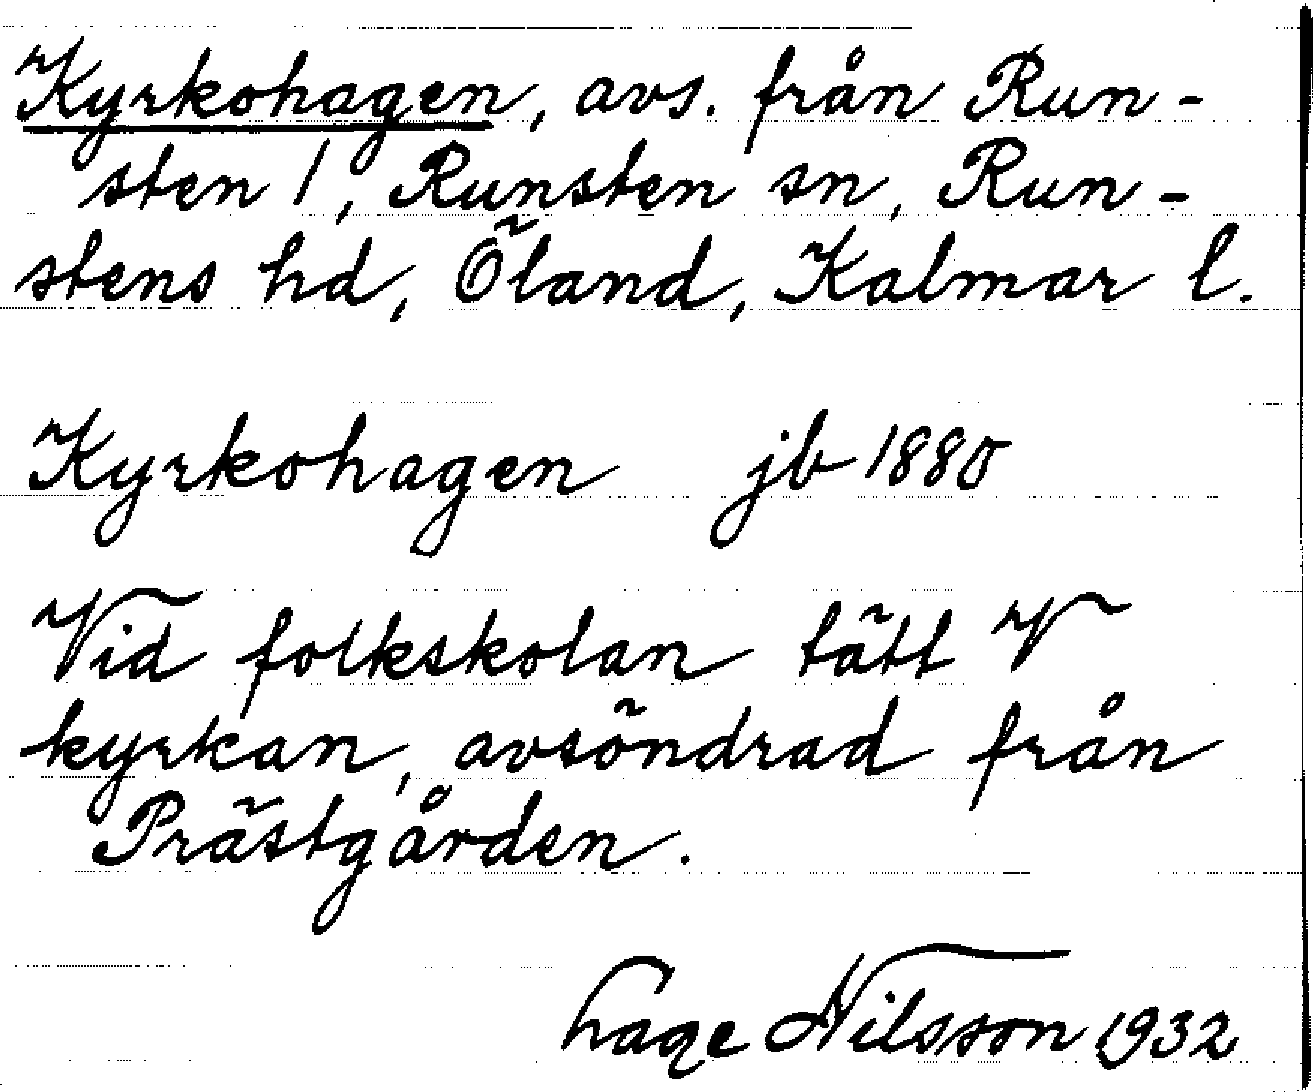 Kyrkohagen, avs. från Run-
sten 1, Runsten sn, Run-
stens hd, Öland, Kalmar l.
Kyrkohagen jb 1880
Vid folkskolan tätt V
kyrkan, avsöndrad från
Prästgården.
Lage Nilsson 1932